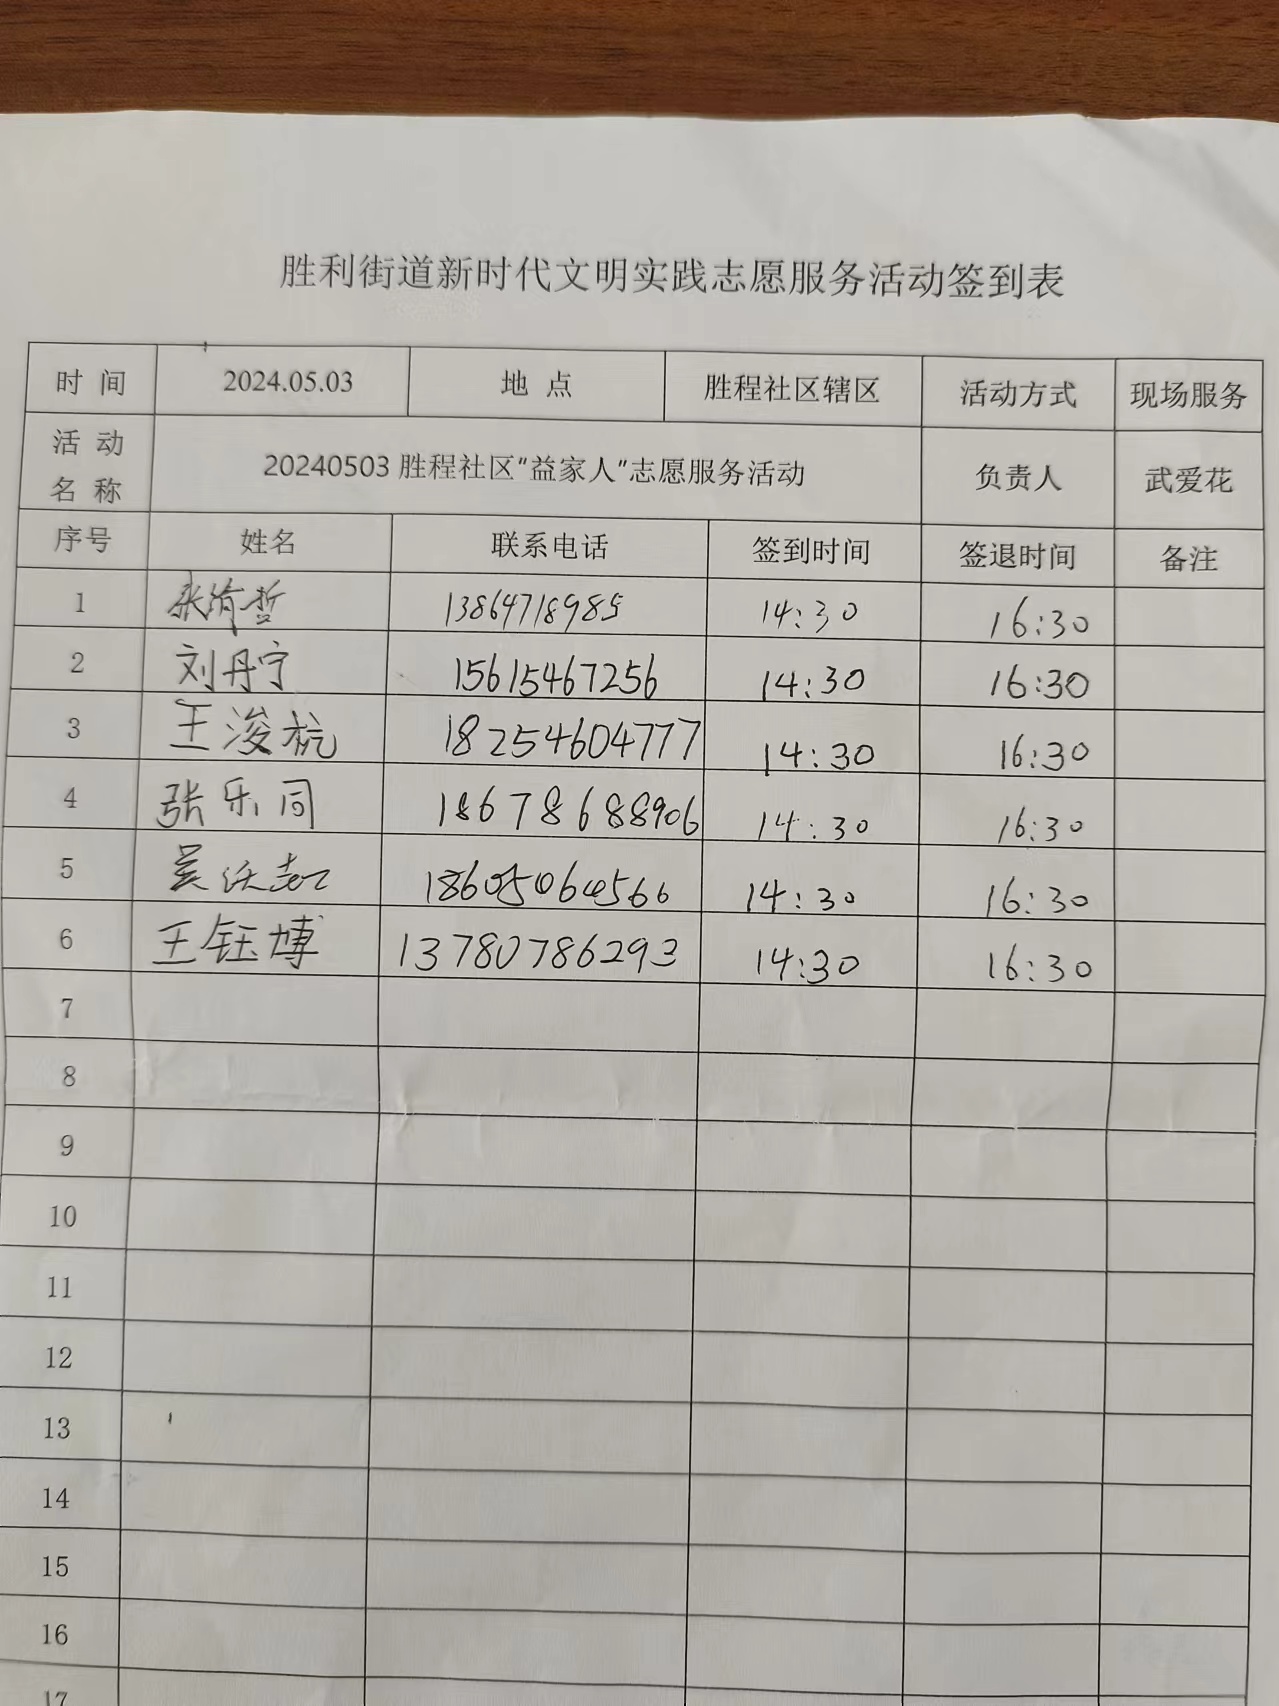 胜利街道新时代文明实践志愿服务活动签到表
时 间 2024.05.03 地 点 胜程社区辖区 活动方式 现场服务
活 动 名 称 20240503 胜程社区"益家人"志愿服务活动 负责人 武爱花
序号 姓名 联系电话 签到时间 签退时间 备注
1 张 哲 13864718985 14:30 16:30
2 刘丹宁 15615467256 14:30 16:30
3 王浚杭 18254604777 14:30 16:30
4 张乐同 18678688906 14:30 16:30
5 吴 14:30 16:30
6 王钰博 13780786293 14:30 16:30
7
8
9
10
11
12
13
14
15
16
17